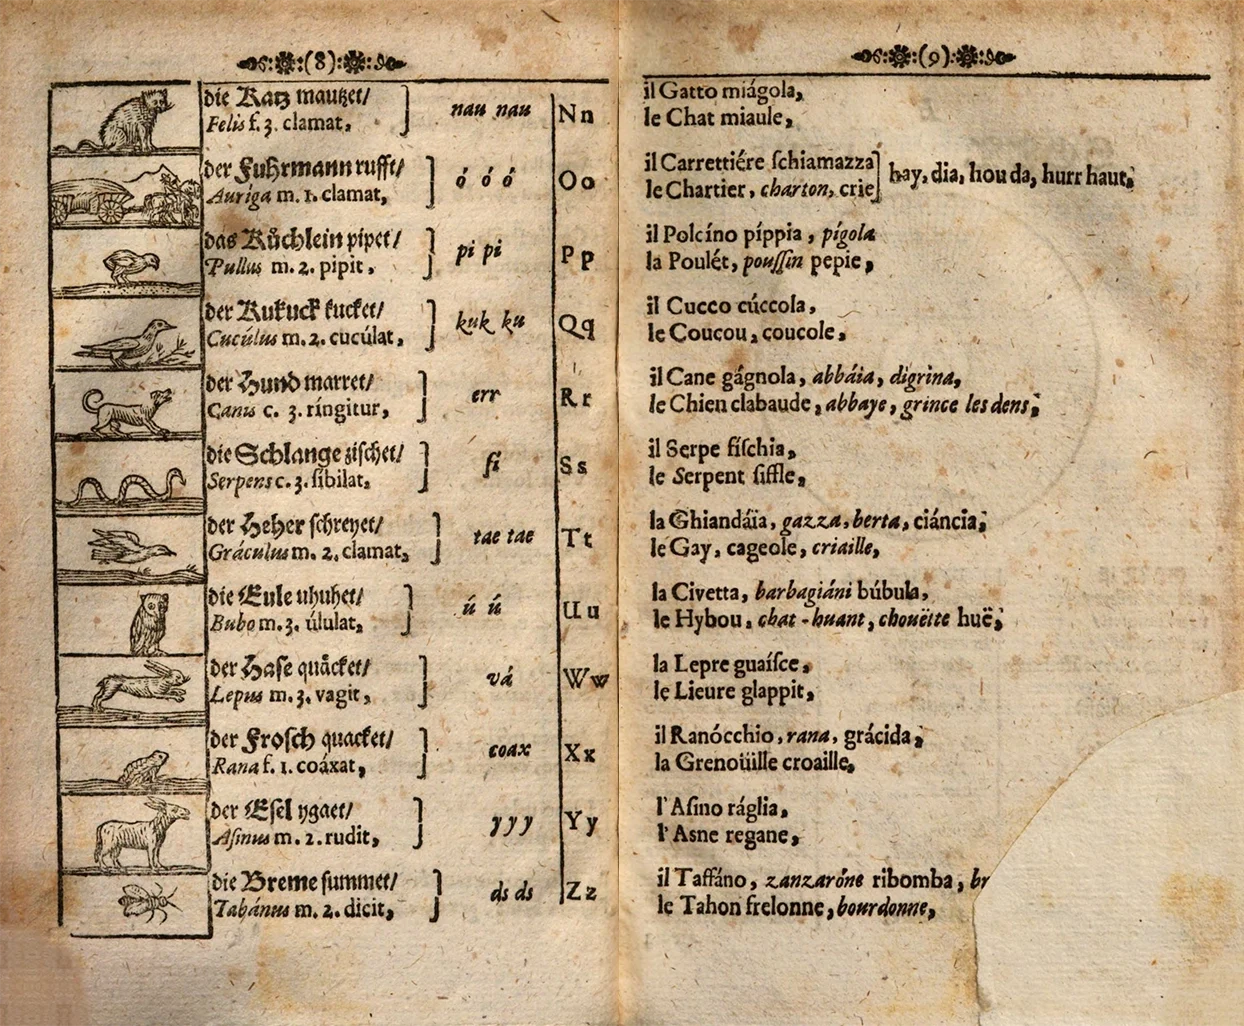 (8)
die Katz mautzet/
Felis f. 3. clamat,
nau nau
Nn
der Fuhrmann rufft/
Auriga m. 1. clamat,
ó ó ó
Oo
das Küchlein pipet/
Pullus m. 2. pipit,
pi pi
Pp
der Kukuck kucket/
Cucúlus m. 2. cucúlat,
kuk ku
Qq
der Hund marret/
Canis c. 3. ríngitur,
err
Rr
die Schlange zischet/
Serpens c. 3. síbilat,
si
Ss
der Heher schreyet/
Gráculus m. 2. clamat,
tae tae
Tt
die Eule uhuhet/
Bubo m. 3. úlulat,
ú ú
Uu
der Hase quäcket/
Lepus m. 3. vagit,
vá
Ww
der Frosch quacket/
Rana f. 1. coáxat,
coax
Xx
der Esel ygaet/
Asinus m. 2. rudit,
yyy
Yy
die Breme summet/
Tabánus m. 2. dicit,
ds ds
Zz
(9)
il Gatto miágola,
le Chat miaule,
il Carrettiére schiamazza
le Chartier, charton, crie
hay, dia, hou da, hurr haut;
il Polcíno píppia, pígola
la Poulét, poussin pepie,
il Cucco cúccola,
le Coucou, coucole,
il Cane gágnola, abbáia, digrina,
le Chien clabaude, abbaye, grince les dens;
il Serpe físchia,
le Serpent siffle,
la Ghiandáïa, gazza, berta, ciáncia;
le Gay, cageole, criaille,
la Civetta, barbagiáni búbula,
le Hybou, chat-huant, chouëtte huë;
la Lepre guaísce,
le Lieure glappit,
il Ranócchio, rana, grácida;
la Grenoüille croaille,
l'Asino ráglia,
l'Asne regane,
il Taffáno, zanzaróne ribomba, br
le Tahon frelonne, bourdonne,